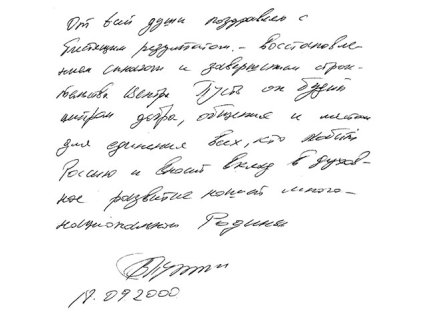 От всей души поздравляю с
блестящим результатом – восстановле-
нием синагоги и завершением строи-
тельства Центра Пусть он будет
центром добра, общения и местом
для единения всех, кто любит
Россию и вносит вклад в духов-
ное развитие нашей много-
национальной Родины
ВПутин
09 2000